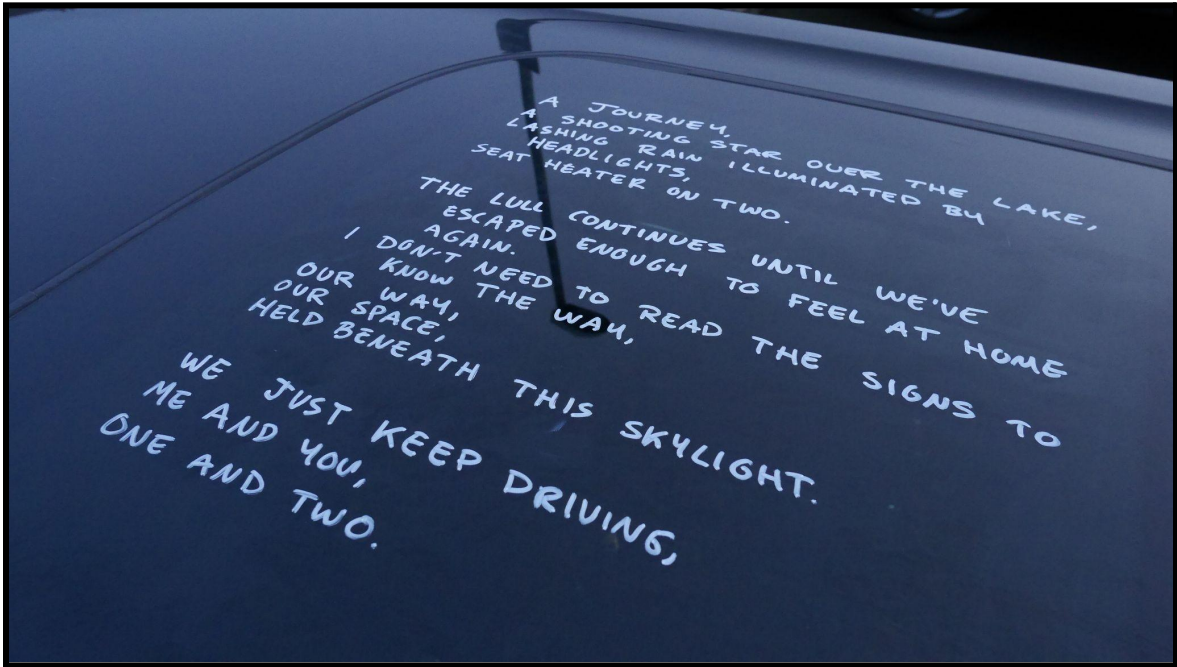 A JOURNEY,
A SHOOTING STAR OVER THE LAKE,
LASHING RAIN ILLUMINATED BY
HEADLIGHTS,
SEAT HEATER ON TWO.
THE LULL CONTINUES UNTIL WE'VE
ESCAPED ENOUGH TO FEEL AT HOME
AGAIN.
I DON'T NEED TO READ THE SIGNS TO
KNOW THE WAY,
OUR WAY,
OUR SPACE,
HELD BENEATH THIS SKYLIGHT.
WE JUST KEEP DRIVING,
ME AND YOU,
ONE AND TWO.